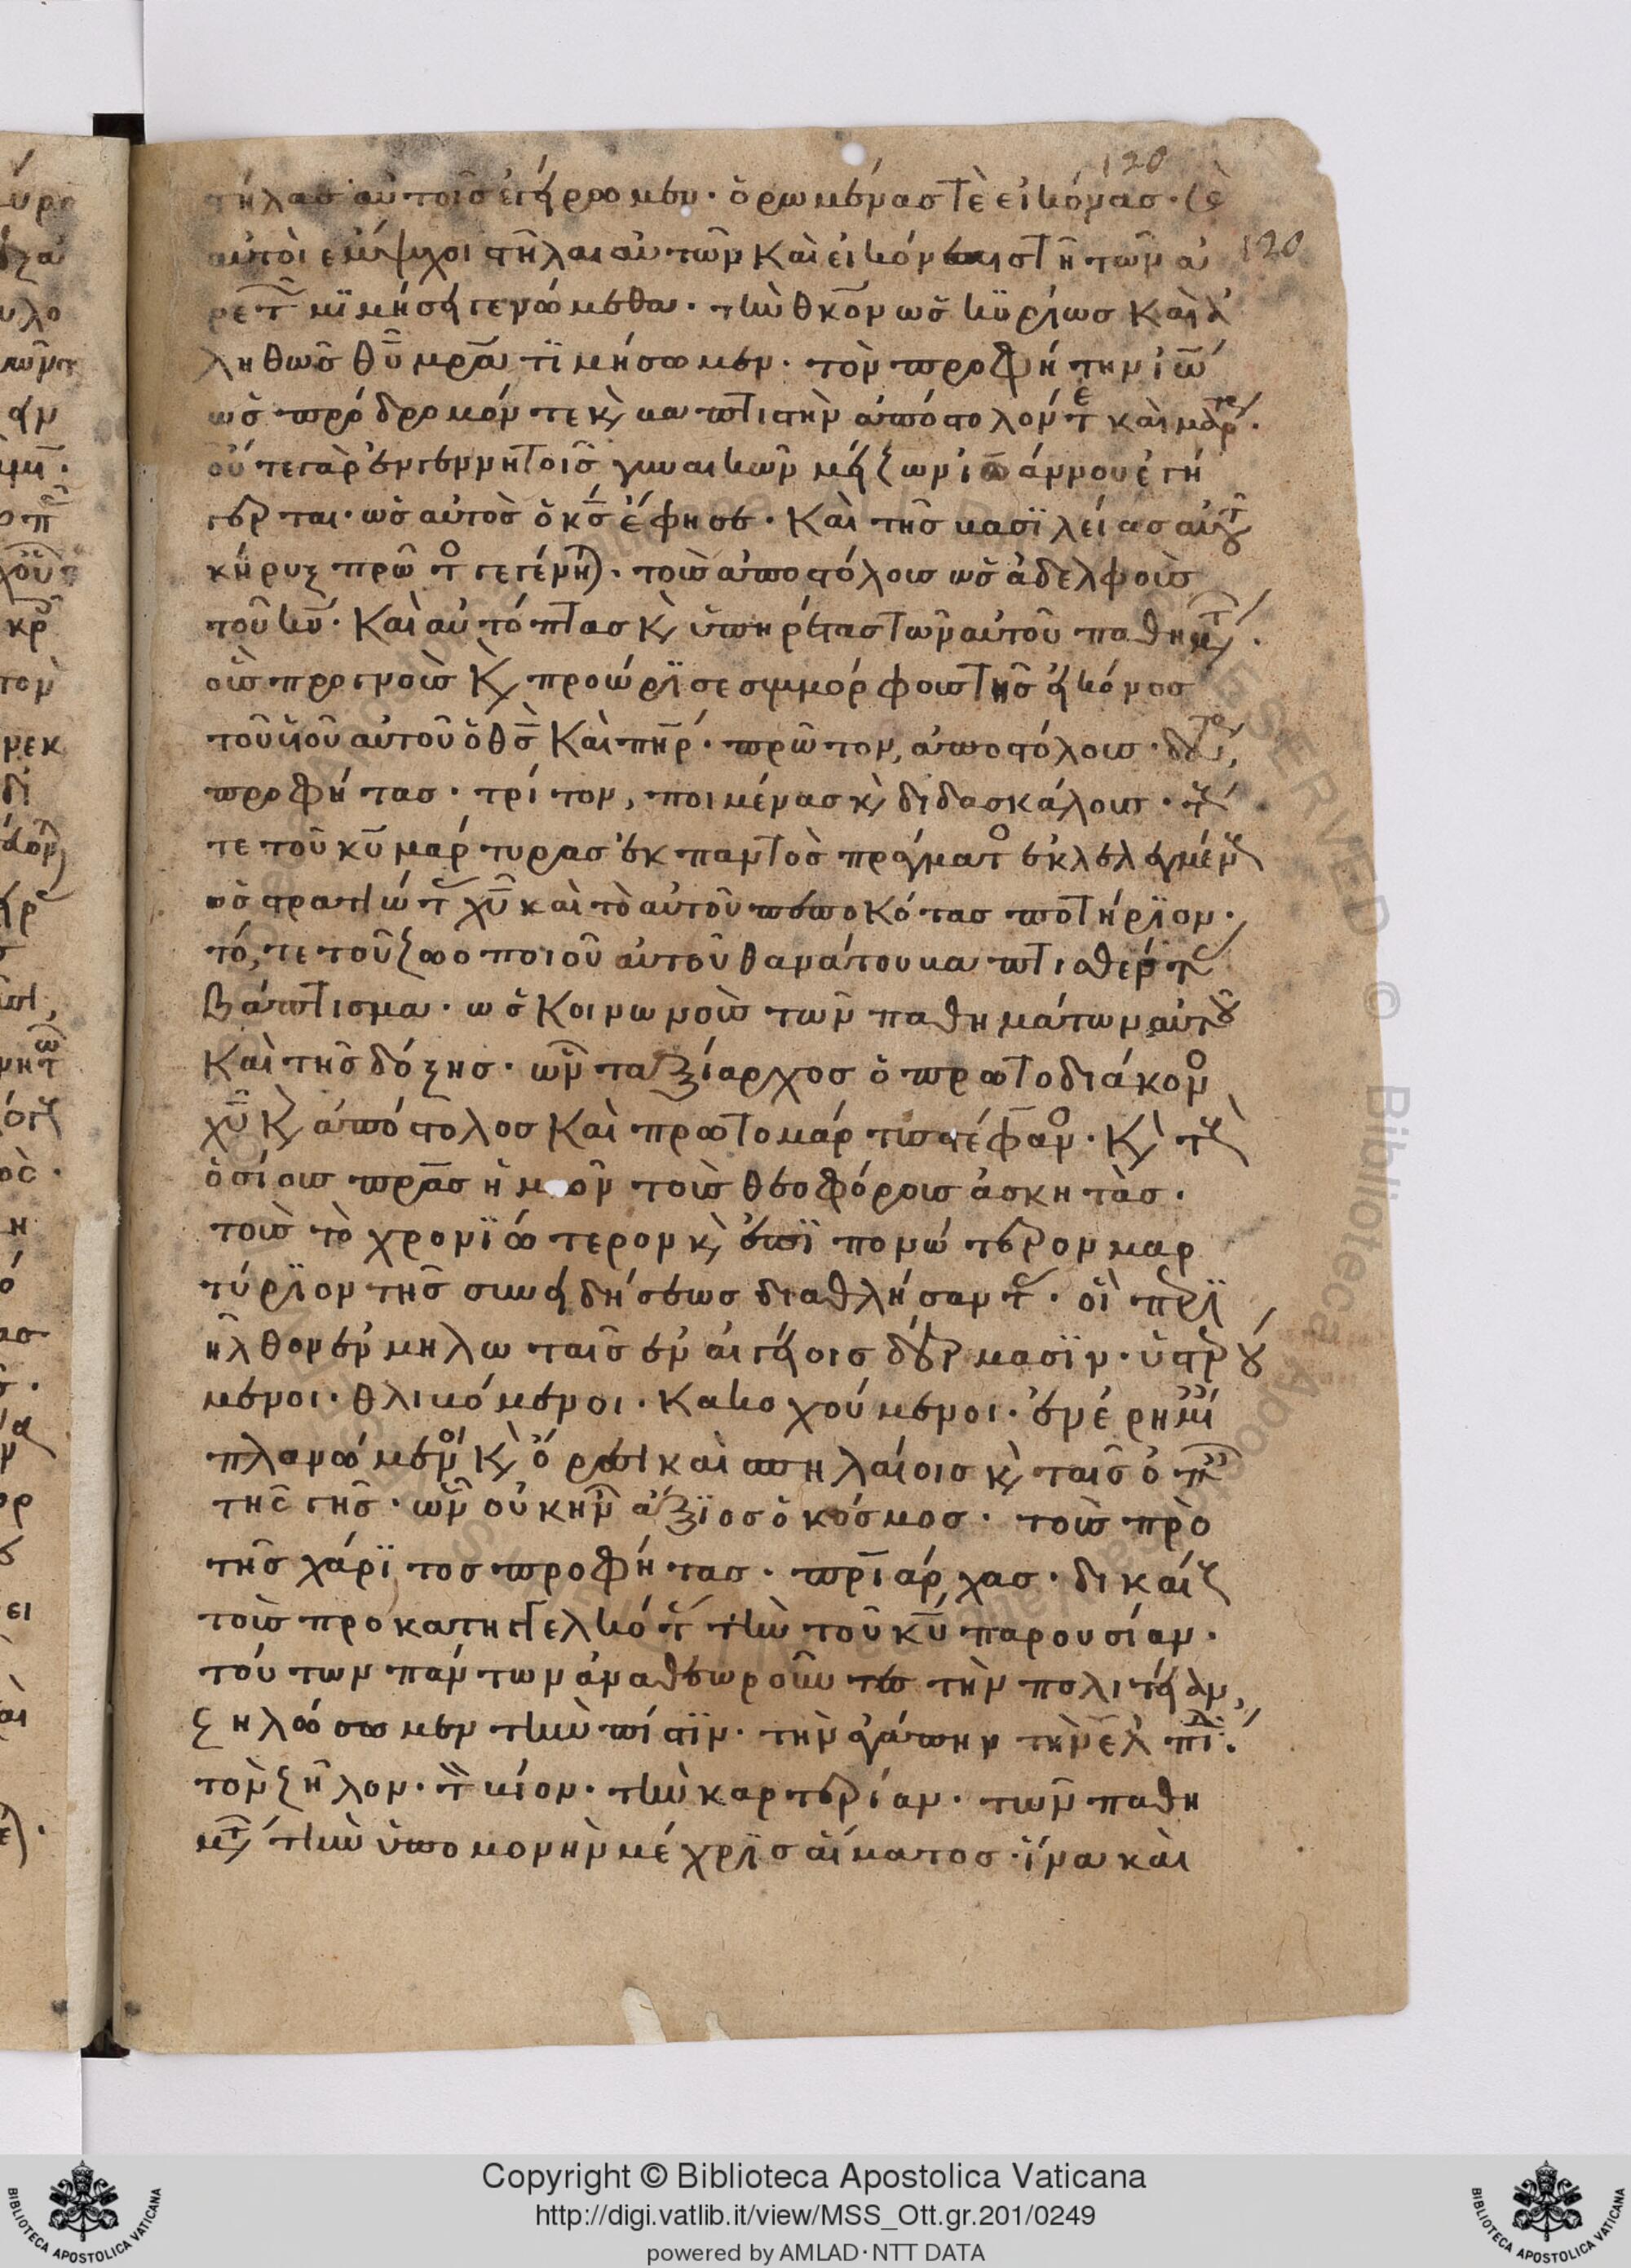 120
τήλας αὐτοῖς ἐγείρωμεν· ὁρωμένας τὲ εἰκόνας· κ(αὶ)
αὐτοὶ ἔμψυχοι στῆλαι αὐτῶν καὶ εἰκόνες τῆ τῶν ἀ
120
ρετ̑ μϊμήσει γενώμεθα· τὴν θκ̅ον ὡς κϋρίως καὶ ἀ
ληθῶς θῦ μρ̅α τϊμήσωμεν· τὸν προφήτην ἰω̅
ὡς πρόδρομόν τε κ(αὶ) βαπτιστὴν ἀπόστολόν τε καὶ μάρτ·
οὔτε γὰρ ἐν γεννητοῖς γυναικῶν μείζων ἰωάννου ἐγή
γερται· ὡς αὐτὸς ὁ κς̅ ἔφησε· καὶ τῆς βασϊλείας αὐτοῦ
κήρυξ πρῶτος γεγένηται· τοὺς ἀποστόλους ὡς ἀδελφοὺς
τοῦ κυ̅· καὶ αὐτόπτας κ(αὶ) ὑπηρέτας τῶν αὐτοῦ παθημ̑τ·
οὓς προέγνους κ(αὶ) προώρϊσε συμμόρφους τῆς εἰκόνος
τοῦ υἱοῦ αὐτοῦ ὁ θς̅ καὶ πηρ̅· πρῶτον, ἀποστόλους· δευτ,
προφήτας· τρίτον, ποιμένας κ(αὶ) διδασκάλους· τοὺς
τε τοῦ κυ̅ μάρτυρας ἐκ παντὸς τάγματος ἐκλελεγμένους
ὡς στρατιώτ χυ̅ καὶ τὸ αὐτοῦ πεπωκότας ποτήρϊον·
τό, τε τοῦ ζωοποιοῦ αὐτοῦ θανάτου βαπτισθέντας
βάπτισμα· ὡς κοινωνοὺς τῶν παθημάτων αὐτοῦ
καὶ τῆς δόξης· ὧν ταξίαρχος ὁ πρωτοδιάκον
χυ̅ κ(αὶ) ἀπόστολος καὶ πρωτομάρτυς στέφαν· κ(αὶ) τοὺς
ὁσίους πρ̅ας ἡμῶν τοὺς θεοφόρους ἀσκητὰς·
τοὺς τὸ χρονϊώτερον κ(αὶ) ἐπϊπονώτερον μαρ
τύρϊον τῆς συνειδήσεως διαθλήσαντ· οἳ περϊ
ῆλθον ἐν μηλωταῖς ἐν αἰγείοις δέρμασϊν· ὑστερού
μενοι· θλιβόμενοι· κακοχούμενοι· ἐν ἐρημί
πλανώμενοι κ(αὶ) ὄρεσι καὶ σπηλαίοις κ(αὶ) ταῖς ὀπ
τῆς γῆς· ὧν οὐκ ἦν ἄξϊος ὁ κόσμος· τοὺς πρὸ
τῆς χάρϊτος προφήτας· πρ̅ιάρχας· δικαίους
τοὺς προκατηγγελκότ τὴν τοῦ κυ̅ παρουσίαν·
τούτων πάντων ἀναθεωροῦντες τὴν πολιτείαν,
ζηλώσωμεν τὴν πίστϊν· τὴν ἀγάπην τὴν ἐλπίδ·
τὸν ζῆλον· τὸν βίον· τὴν καρτερίαν· τῶν παθη
μ̑τ τὴν ὑπομονὴν μέχρϊς αἵματος· ἵνα καὶ
Copyright © Biblioteca Apostolica Vaticana
http://digi.vatlib.it/view/MSS_Ott.gr.201/0249
powered by AMLAD·NTT DATA